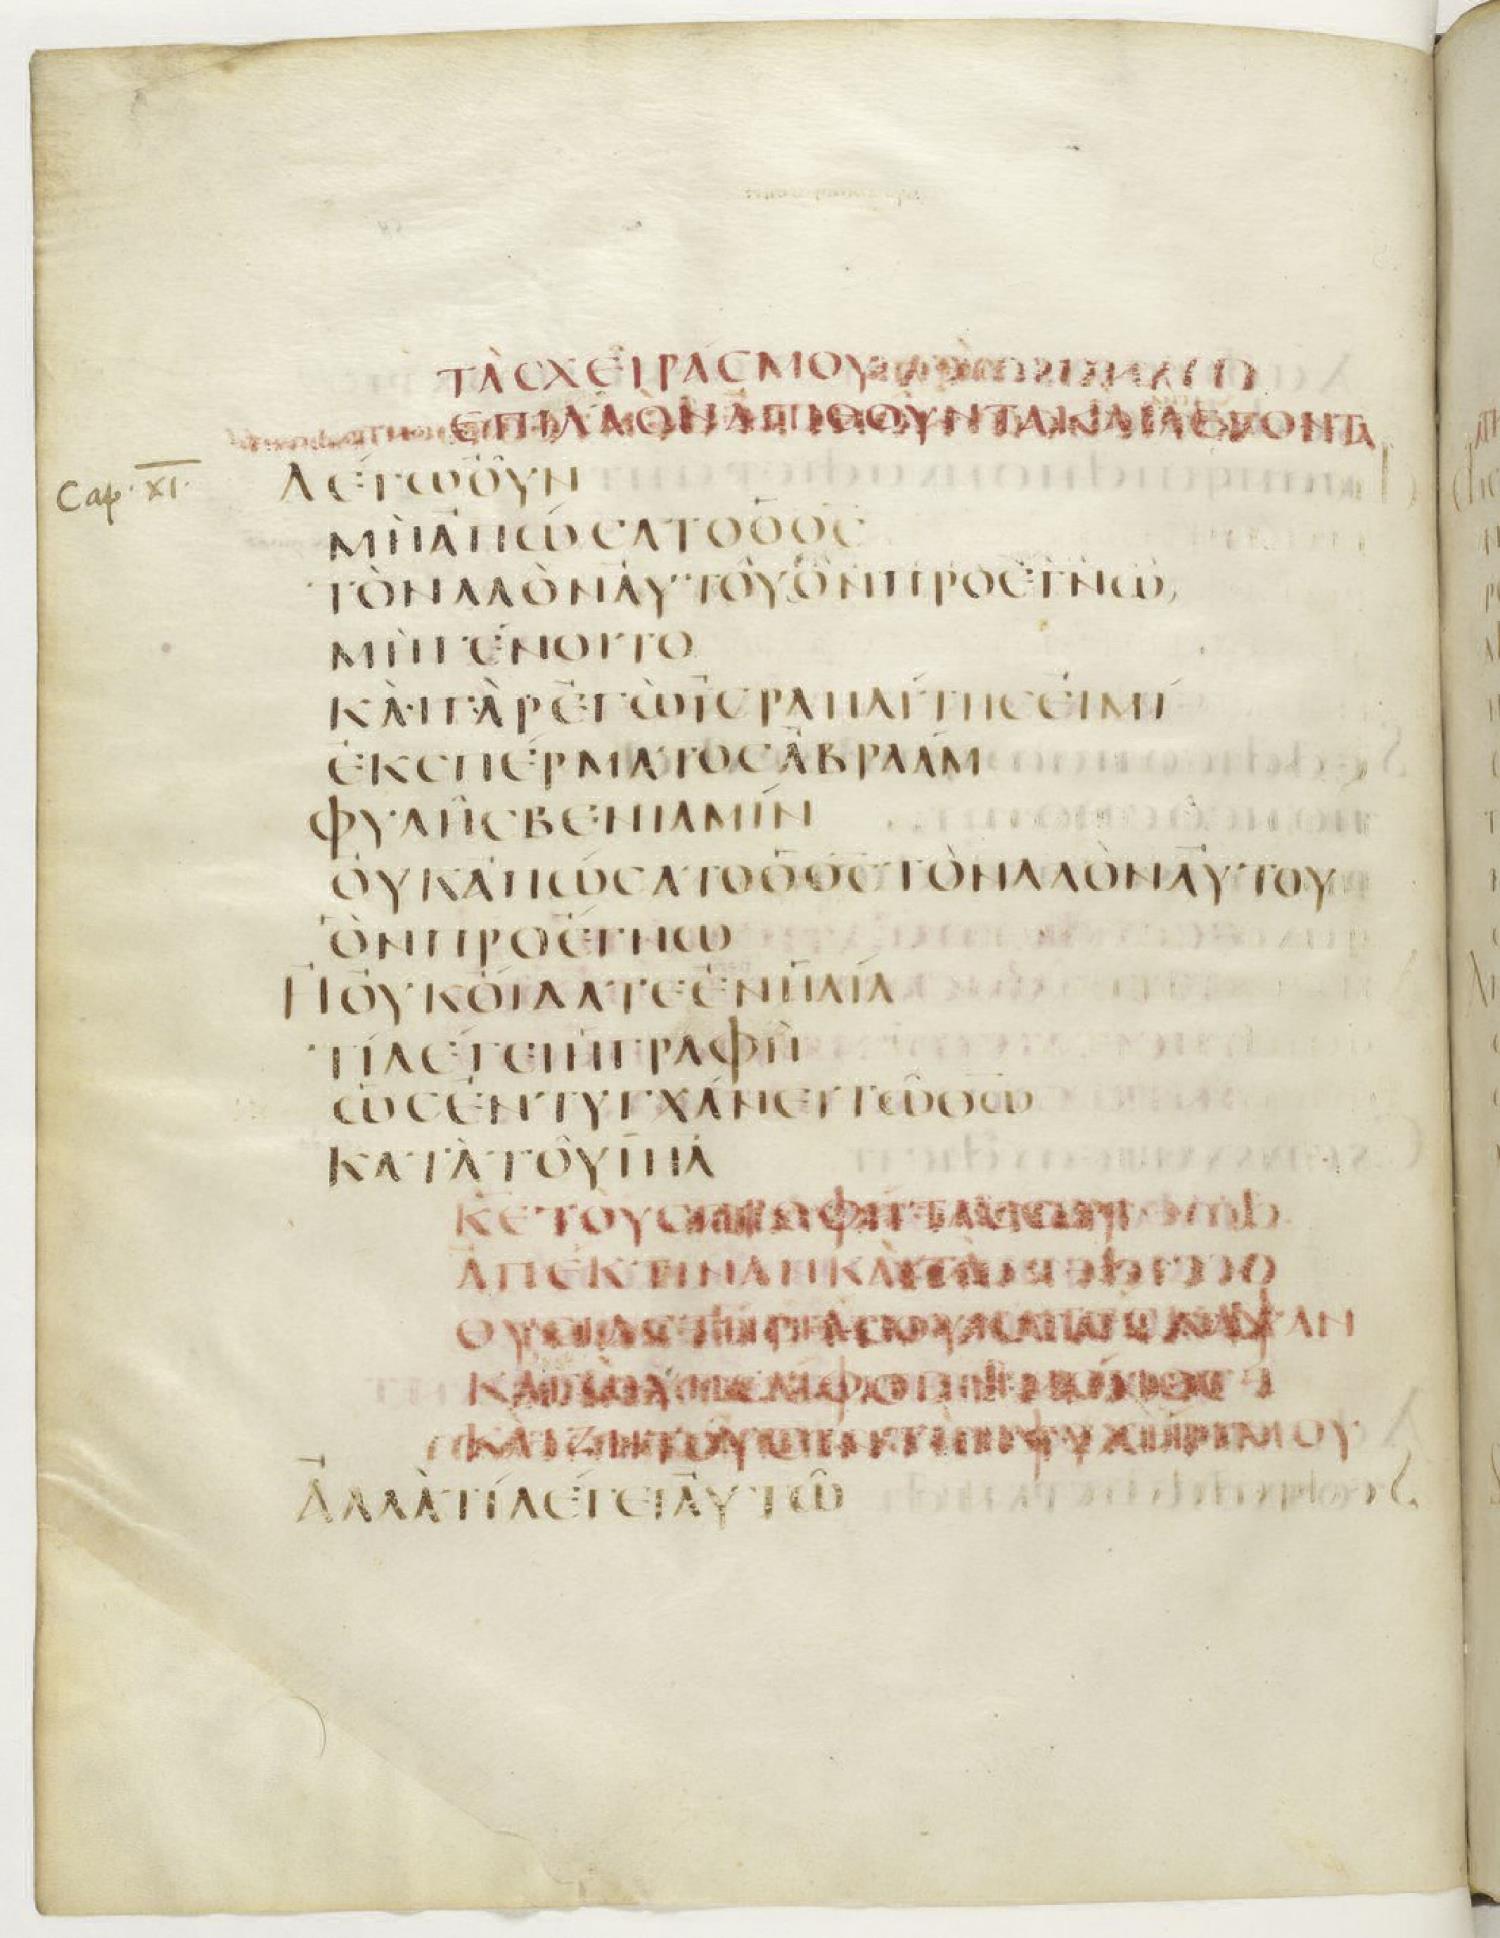 ΤΑCΧΕΙΡΑCΜΟΥ
ΕΠΙΛΑΟΝΑΠΙΘΟΥΝΤΑΚΑΙΛΕΓΟΝΤΑ
Cap. XI.
ΛΕΓΩΟΥΝ
ΜΗΑΠΩCΑΤΟΟΘC
ΤΟΝΛΑΟΝΑΥΤΟΥΟΝΠΡΟΕΓΝΩ
ΜΗΓΕΝΟΙΤΟ
ΚΑΙΓΑΡΕΓΩΙCΡΑΗΛΙΤΗCΕΙΜΙ
ΕΚCΠΕΡΜΑΤΟCΑΒΡΑΑΜ
ΦΥΛΗCΒΕΝΙΑΜΙΝ
ΟΥΚΑΠΩCΑΤΟΟΘCΤΟΝΛΑΟΝΑΥΤΟΥ
ΟΝΠΡΟΕΓΝΩ
ΗΟΥΚΟΙΔΑΤΕΕΝΗΛΙΑ
ΤΙΛΕΓΕΙΗΓΡΑΦΗ
ΩCΕΝΤΥΓΧΑΝΕΙΤΩΘΩ
ΚΑΤΑΤΟΥΙΗΛ
ΚΕΤΟΥCΠΡΟΦΗΤΑCCΟΥ
ΑΠΕΚΤΙΝΑΝΚΑΙΤΑ
ΘΥCΙΑCΤΗΡΙΑCΟΥΚΑΤΕCΚΑΨΑΝ
ΚΑΙ
ΚΑΙΖΗΤΟΥCΙΝΤΗΝΨΥΧΗΝΜΟΥ
ΑΛΛΑΤΙΛΕΓΕΙΑΥΤΩ